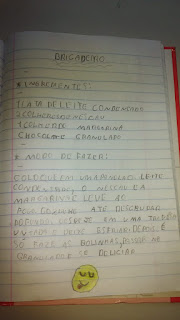 BRIGADEIRO
* INGREDIENTES:
1 LATA DE LEITE CONDENSADO
2 COLHERES DE NESCAU
1 COLHER DE MARGARINA
CHOCOLATE GRANULADO
* MODO DE FAZER:
COLOQUE EM UMA PANELA O LEITE
CONDENSADO, O NESCAU E A
MARGARINA E LEVE AO
FOGO ATÉ DESGRUDAR
DO FUNDO. EM UMA
E DEIXE ESFRIAR DEPOIS É
SÓ FAZER AS BOLINHAS, PASSAR NO
GRANULADO E SE DELICIAR